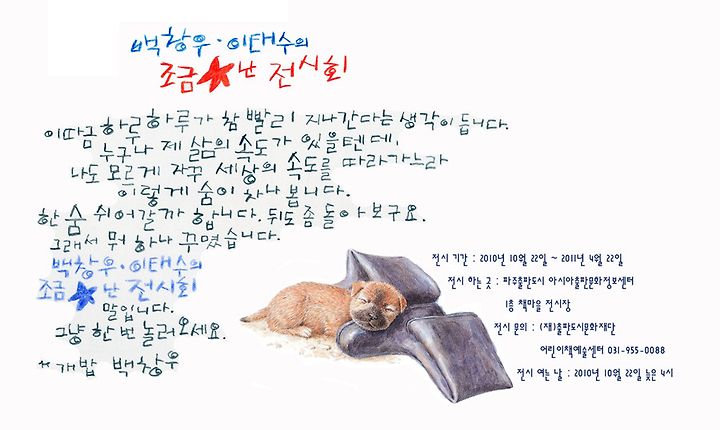 백창우·이태수의
조금★난 전시회
이따금 하루하루가 참 빨리 지나간다는 생각이 듭니다.
누구나 제 삶의 속도가 있을텐데,
나도 모르게 자꾸 세상의 속도를 따라가느라
이렇게 숨이 차나 봅니다.
한 숨 쉬어갈까 합니다. 뒤도 좀 돌아보구요.
그래서 뭐 하나 꾸몄습니다.
백창우·이태수의
조금★난 전시회
말입니다.
그냥 한번 놀러오세요.
개밥 백창우
전시 기간 : 2010년 10월 22일 ~ 2011년 4월 22일
전시 하는 곳 : 파주출판도시 아시아출판문화정보센터
1층 책마을 전시장
전시 문의 : (재)출판도시문화재단
어린이책예술센터 031-955-0088
전시 여는 날 : 2010년 10월 22일 늦은 4시